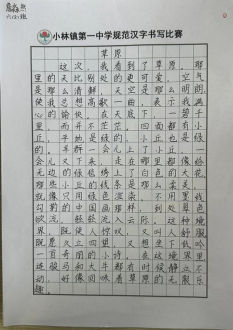 小林镇第一中学规范汉字书写比赛
草原
这次，我看到了草原。那
里的天比别处的更可爱，空气
是那么清鲜，天空是那么明朗，
使我总想高歌一曲，表示我满
心的愉快。在天底下，一碧千
里，而并不茫茫。四面都有小
丘，平地是绿的，小丘也是绿
的。羊群一会儿上了小丘，一
会儿又下来，走在哪里都像给
无边的绿毯绣上了白色的大花。
那些小丘的线条是那么柔美，
就像只用绿色渲染，不用墨线
勾勒的中国画那样，到处翠色
欲流，轻轻流入云际。这种境
界，既使人惊叹，又叫人舒服，
既愿久立四望，又想坐下低吟
一首奇丽的小诗。在这境界里，
连骏马和大牛都有时候静立不
动，好像回味着草原的无限乐
趣。